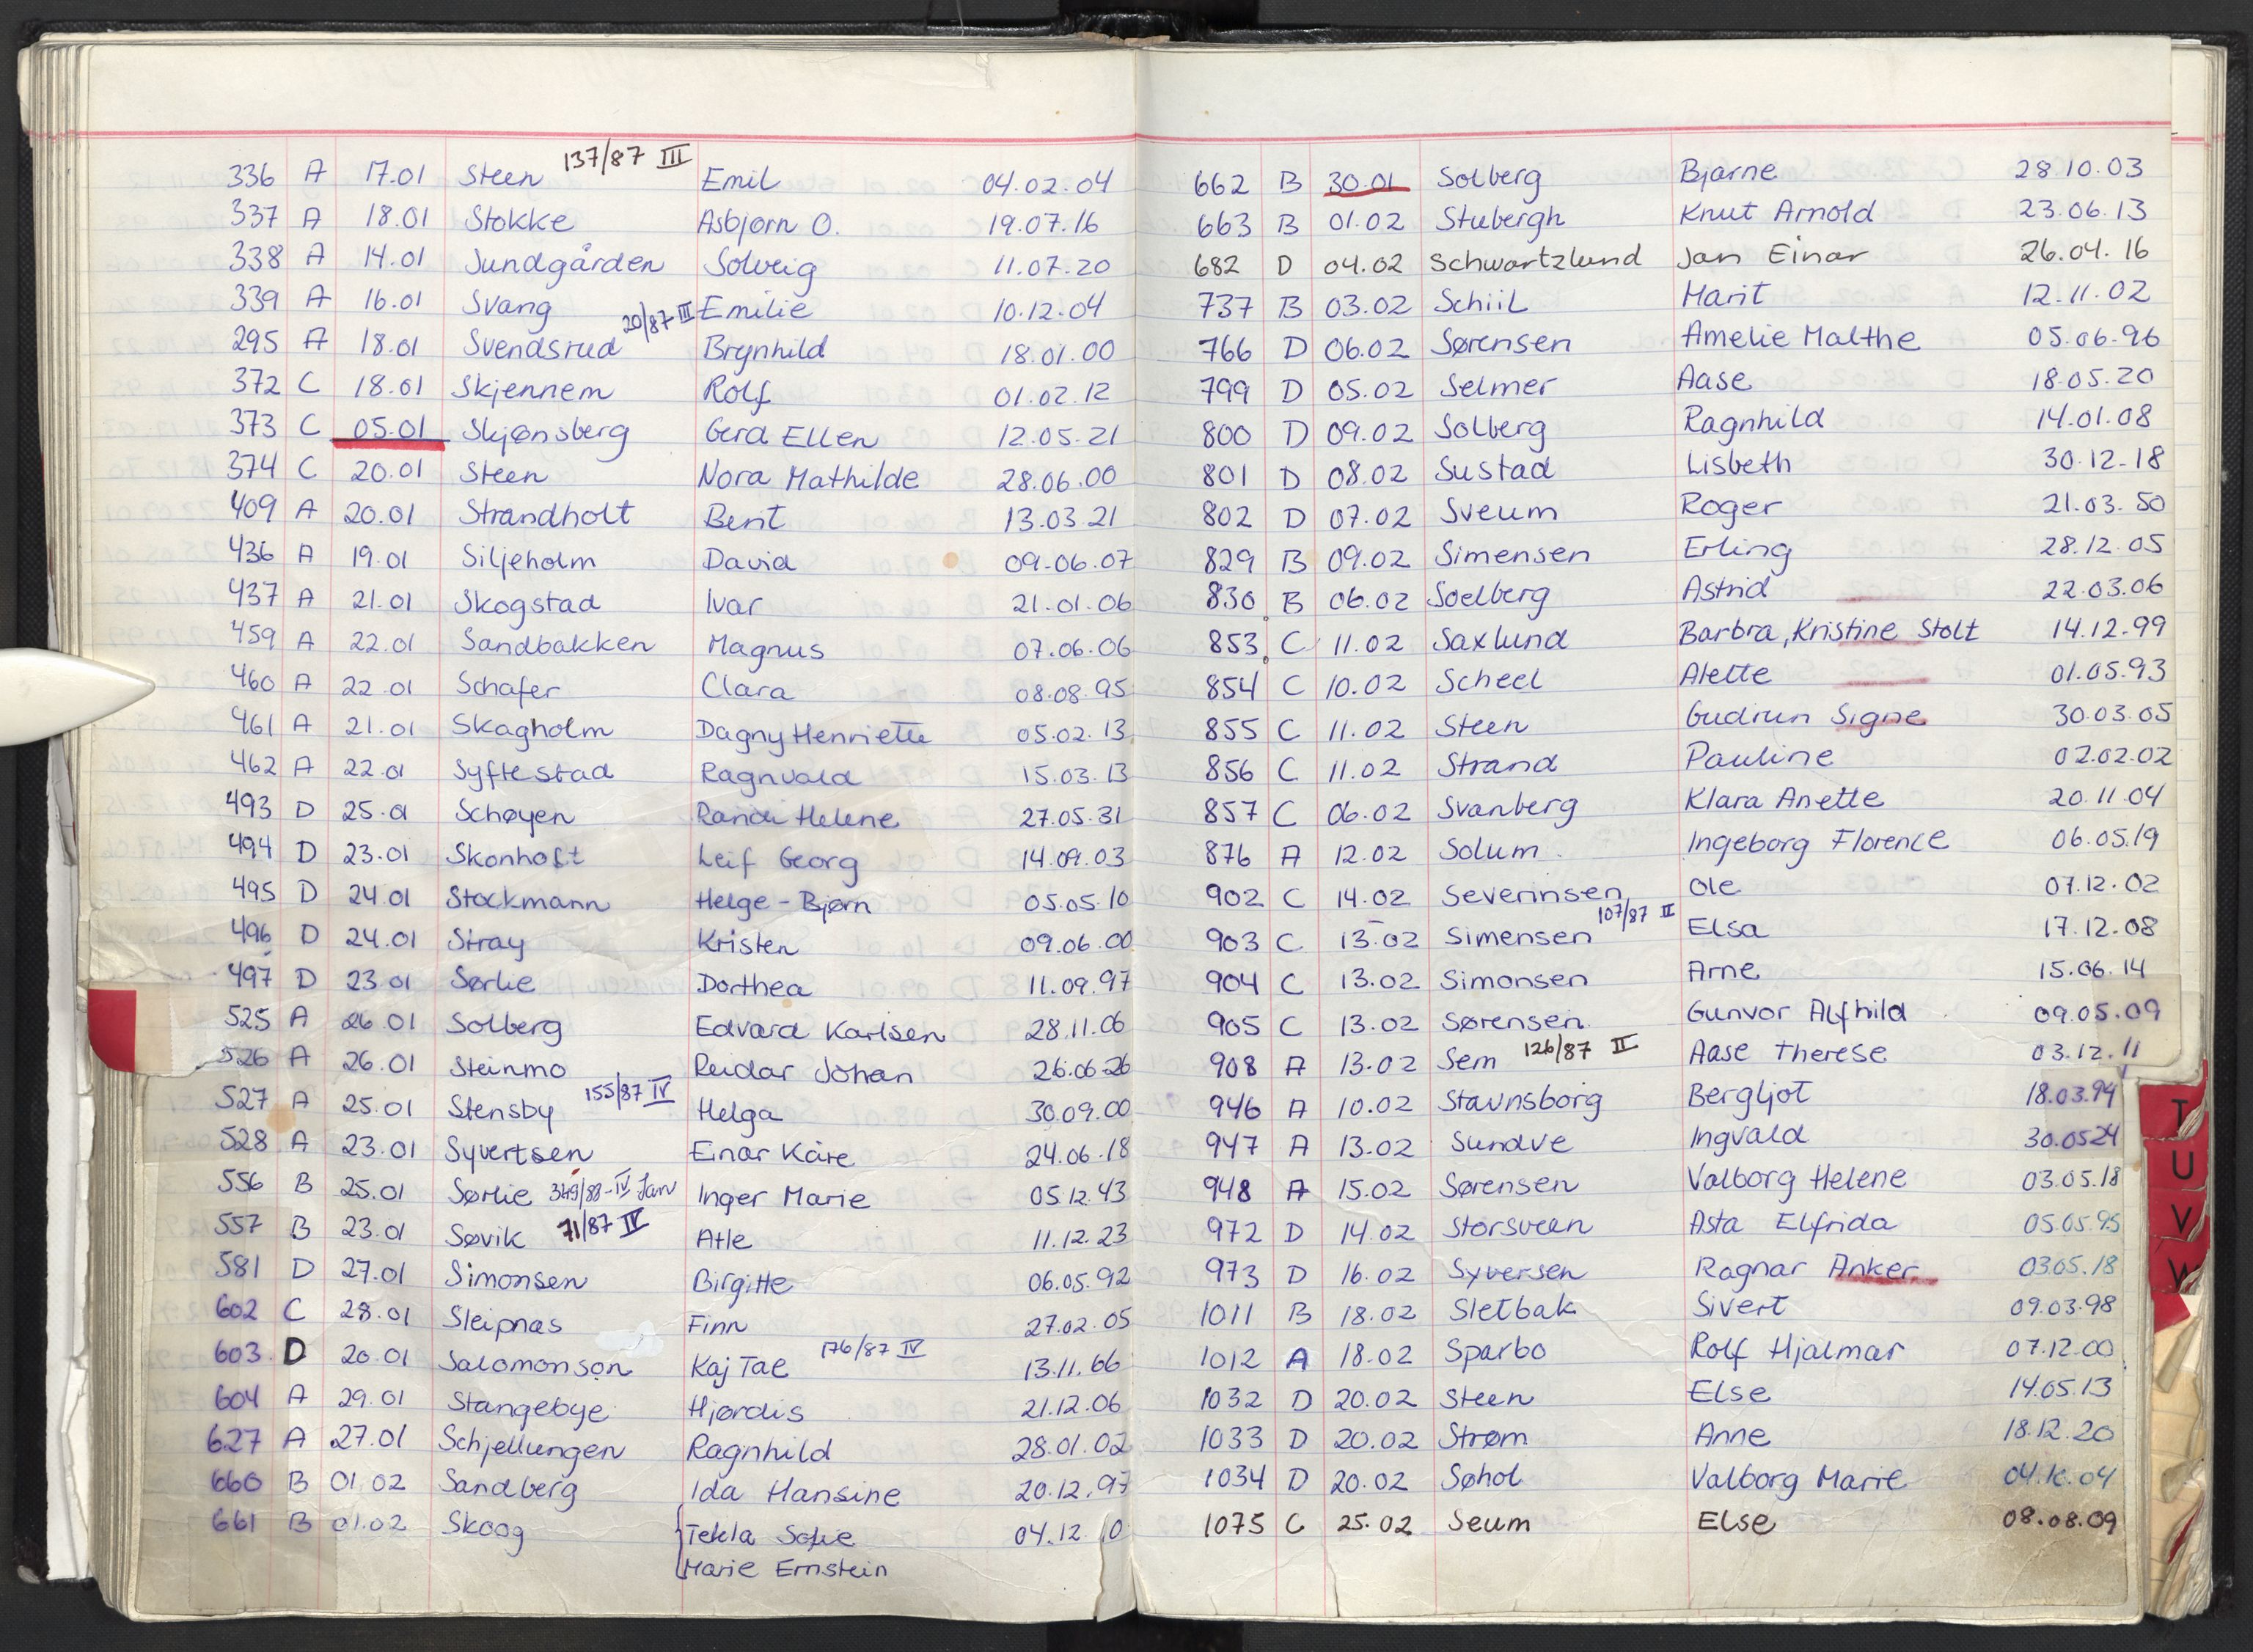 336 A 17.01 Steen 137/87 III Emil 04.02.04
337 A 18.01 Stokke Asbjørn O. 19.07.16
338 A 14.01 Sundgården Solveig 11.07.20
339 A 16.01 Svang Emilie 10.12.04
295 A 18.01 Svendsrud 20/87 III Brynhild 18.01.00
372 C 18.01 Skjennem Rolf 01.02.12
373 C 05.01 Skjønsberg Gerd Ellen 12.05.21
374 C 20.01 Steen Nora Mathilde 28.06.00
409 A 20.01 Strandholt Berit 13.03.21
436 A 19.01 Siljeholm David 09.06.07
437 A 21.01 Skogstad Ivar 21.01.06
459 A 22.01 Sandbakken Magnus 07.06.06
460 A 22.01 Schafer Clara 08.08.95
461 A 21.01 Skagholm Dagny Henriette 05.02.13
462 A 22.01 Syftestad Ragnvald 15.03.13
493 D 25.01 Schøyen Randi Helene 27.05.31
494 D 23.01 Skonhoft Leif Georg 14.09.03
495 D 24.01 Stockmann Helge-Bjørn 05.05.10
496 D 24.01 Stray Kristen 09.06.00
497 D 23.01 Sørlie Dorthea 11.09.97
525 A 26.01 Solberg Edvard Karlsen 28.11.06
526 A 26.01 Steinmo Reidar Johan 26.06.26
527 A 25.01 Stensby 155/87 IV Helga 30.09.00
528 A 23.01 Syvertsen Einar Kåre 24.06.18
556 B 25.01 Sørlie 349/88-IV Jan Inger Marie 05.12.43
557 B 23.01 Søvik 71/87 IV Atle 11.12.23
581 D 27.01 Simonsen Birgitte 06.05.92
602 C 28.01 Sleipnas Finn 27.02.05
603 D 20.01 Salomonson Kaj Tae 176/87 IV 13.11.66
604 A 29.01 Stangebye Hjørdis 21.12.06
627 A 27.01 Schjellungen Ragnhild 28.01.02
660 B 01.02 Sandberg Ida Hansine 20.12.97
661 B 01.02 Skoog Tekla Sofie 04.12.10
Marie Ernstein
662 B 30.01 Solberg Bjarne 28.10.03
663 B 01.02 Stubergh Knut Arnold 23.06.13
682 D 04.02 Schwartzlund Jan Einar 26.04.16
737 B 03.02 Schiil Marit 12.11.02
766 D 06.02 Sørensen Amelie Malthe 05.06.96
799 D 05.02 Selmer Aase 18.05.20
800 D 09.02 Solberg Ragnhild 14.01.08
801 D 08.02 Sustad Lisbeth 30.12.18
802 D 07.02 Sveum Roger 21.03.50
829 B 09.02 Simensen Erling 28.12.05
830 B 06.02 Soelberg Astrid 22.03.06
853 C 11.02 Saxlund Barbra, Kristine Stolt 14.12.99
854 C 10.02 Scheel Alette 01.05.93
855 C 11.02 Steen Gudrun Signe 30.03.05
856 C 11.02 Strand Pauline 02.02.02
857 C 06.02 Svanberg Klara Anette 20.11.04
876 A 12.02 Solum Ingeborg Florence 06.05.19
902 C 14.02 Severinsen Ole 07.12.02
903 C 13.02 Simensen 107/87 II Elsa 17.12.08
904 C 13.02 Simonsen Arne 15.06.14
905 C 13.02 Sørensen Gunvor Alfhild 09.05.09
908 A 13.02 Sem 126/87 II Aase Therese 03.12.11
946 A 10.02 Staunsborg Bergljot 18.03.94
947 A 13.02 Sundve Ingvald 30.0524
948 A 15.02 Sørensen Valborg Helene 03.05.18
972 D 14.02 Storsveen Asta Elfrida 05.05.95
973 D 16.02 Syversen Ragnar Anker 03.05.18
1011 B 18.02 Sletbak Sivert 09.03.98
1012 A 18.02 Sparbo Rolf Hjalmar 07.12.00
1032 D 20.02 Steen Else 14.05.13
1033 D 20.02 Strøm Anne 18.12.20
1034 D 20.02 Søhol Valborg Marie 04.10.04
1075 C 25.02 Seum Else 08.08.09
T
U
V
W